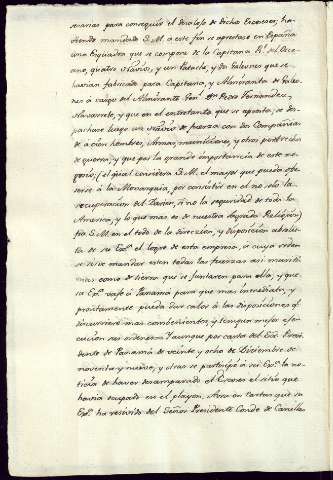 sarias para conseguir el desalojo de dichos Escoceses; ha-
viendo mandado S.M. a este fin se aprestase en España
una Esquadra que se compone de la Capitana Rl. del Oce-
ano, quatro Navios, y un Patache, y dos Galeones que se
havian fabricado para Capitana, y Almiranta de Galeo-
nes a cargo del Almirante Gen. Dn. Pedro Fernandez
Navarrete, y que en el entretanto que se apresta, se des-
pachase luego un Navio de fuerza con dos Compañias
de a cien hombres, Armas, municiones, y otros pertrechos
de guerra; y que por la grande importancia de este ne-
gocio, (el qual considera S.M. el mayor que puede ofre-
cerse à la Monarquia, por consistir en el no solo la
recuperacion del Darien, si no la seguridad de toda la
America, y lo que mas es de nuestra Sagrada Religion)
fio S.M. en el todo de la direccion, y disposicion absolu-
ta de su Exa. el logro de esta empresa, a cuya orden
se sirve mandar esten todas las fuerzas asi mariti-
mas como de tierra que se juntaren para ello, y que
su Exa. vase à Panamà para que mas inmediato, y
prontamente pueda dar calor à las disposiciones qe.
discurriere mas combenientes, y tengan mejor exe-
cucion sus ordenes: Y aunque por carta del Sor. Presi-
dente de Panamà de veinte y ocho de Diciembre de
noventa y nueve, y otras se participò à su Exa. la no-
ticia de haver desamparado el Escoces el sitio que
havia ocupado en el playon. Aora en Cartas que su
Exa. ha recivido del Señor Presidente Conde de Canillas